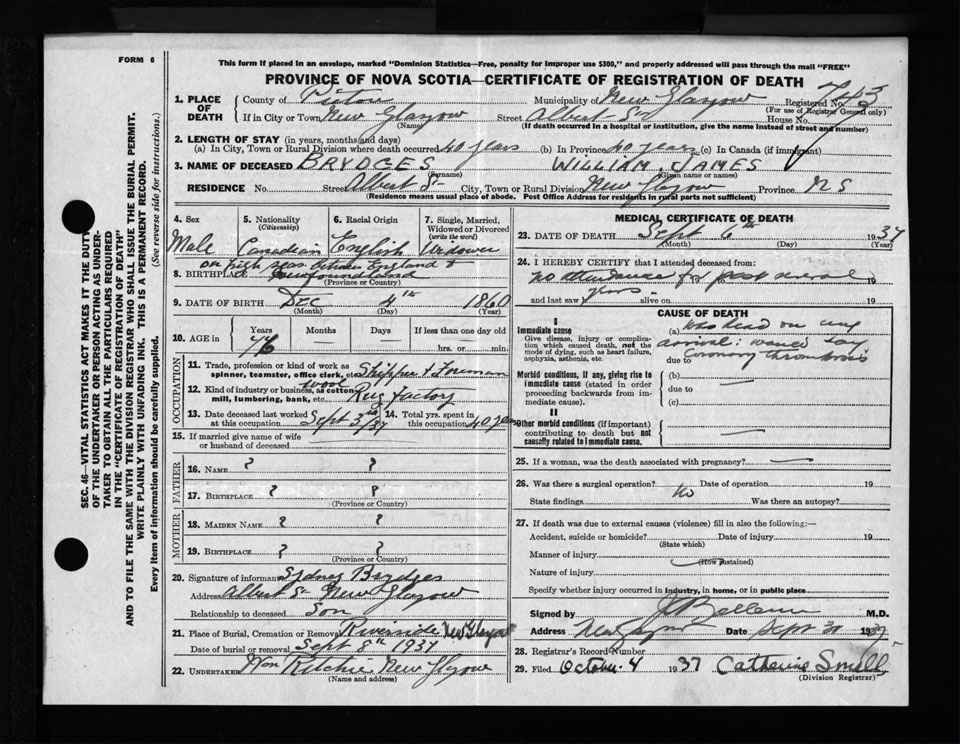 FORM 6
This form if placed in an envelope, marked "Dominion Statistics—Free, penalty for improper use $300," and properly addressed will pass through the mail "FREE"
PROVINCE OF NOVA SCOTIA—CERTIFICATE OF REGISTRATION OF DEATH
1. PLACE OF DEATH
County of Pictou Municipality of New Glasgow Registered No.
(For use of Registrar General only)
If in City or Town New Glasgow Street Albert St House No.
(Name) (If death occurred in a hospital or institution, give the name instead of street and number)
2. LENGTH OF STAY (in years, months and days)
(a) In City, Town or Rural Division where death occurred 40 years (b) In Province 40 years (c) In Canada (if immigrant)
3. NAME OF DECEASED BRYDGES WILLIAM JAMES
(Surname) (Given name or names)
RESIDENCE No. Street Albert St City, Town or Rural Division New Glasgow Province N S
(Residence means usual place of abode. Post Office Address for residents in rural parts not sufficient)
SEC. 46—VITAL STATISTICS ACT MAKES IT THE DUTY
OF THE UNDERTAKER OR PERSON ACTING AS UNDER-
TAKER TO OBTAIN ALL THE PARTICULARS REQUIRED
IN THE "CERTIFICATE OF REGISTRATION OF DEATH"
AND TO FILE THE SAME WITH THE DIVISION REGISTRAR WHO SHALL ISSUE THE BURIAL PERMIT.
WRITE PLAINLY WITH UNFADING INK. THIS IS A PERMANENT RECORD.
Every item of information should be carefully supplied. (See reverse side for instructions.)
4. Sex 5. Nationality 6. Racial Origin 7. Single, Married,
(Citizenship) Widowed or Divorced
(write the word)
Male Canadian English Widower
on high seas between England &
8. BIRTHPLACE Newfoundland
(Province or Country)
9. DATE OF BIRTH Dec 4th 1860
(Month) (Day) (Year)
10. AGE in Years Months Days If less than one day old
76 — — hrs. or min.
OCCUPATION
11. Trade, profession or kind of work as
spinner, teamster, office clerk, etc. Shipper & Foreman
12. Kind of industry or business, as cotton
mill, lumbering, bank, etc. wool Rug factory
13. Date deceased last worked 14. Total yrs. spent in
at this occupation Sept 3rd/37 this occupation 40 years
15. If married give name of wife
or husband of deceased
FATHER
16. NAME ? ?
17. BIRTHPLACE ? ?
(Province or Country)
MOTHER
18. MAIDEN NAME ? ?
19. BIRTHPLACE ? ?
(Province or Country)
20. Signature of informant Sydney Brydges
Address Albert St New Glasgow
Relationship to deceased Son
21. Place of Burial, Cremation or Removal Riverside New Glasgow
Date of burial or removal Sept 8th 1937
22. UNDERTAKER Wm Ritchie New Glasgow
(Name and address)
MEDICAL CERTIFICATE OF DEATH
23. DATE OF DEATH Sept 6th 1937
(Month) (Day) (Year)
24. I HEREBY CERTIFY that I attended deceased from:
no attendance for past several 19 to 19
and last saw years alive on 19
CAUSE OF DEATH
I
Immediate cause
Give disease, injury or complica-
tion which caused death, not the
mode of dying, such as heart failure,
asphyxia, asthenia, etc.
(a) was dead on my
arrival: would say
due to coronary thrombosis
Morbid conditions, if any, giving rise to
immediate cause (stated in order
proceeding backwards from im-
mediate cause).
(b)
due to —
(c)
II
Other morbid conditions (if important)
contributing to death but not
causally related to immediate cause. —
25. If a woman, was the death associated with pregnancy? —
26. Was there a surgical operation? No Date of operation 19
State findings Was there an autopsy?
27. If death was due to external causes (violence) fill in also the following:—
Accident, suicide or homicide? Date of injury 19
(State which)
Manner of injury
(How sustained)
Nature of injury
Specify whether injury occurred in industry, in home, or in public place
Signed by M.D.
Address New Glasgow Date Sept 1937
28. Registrar's Record Number
29. Filed October 4 1937 Catherine Small
(Division Registrar)